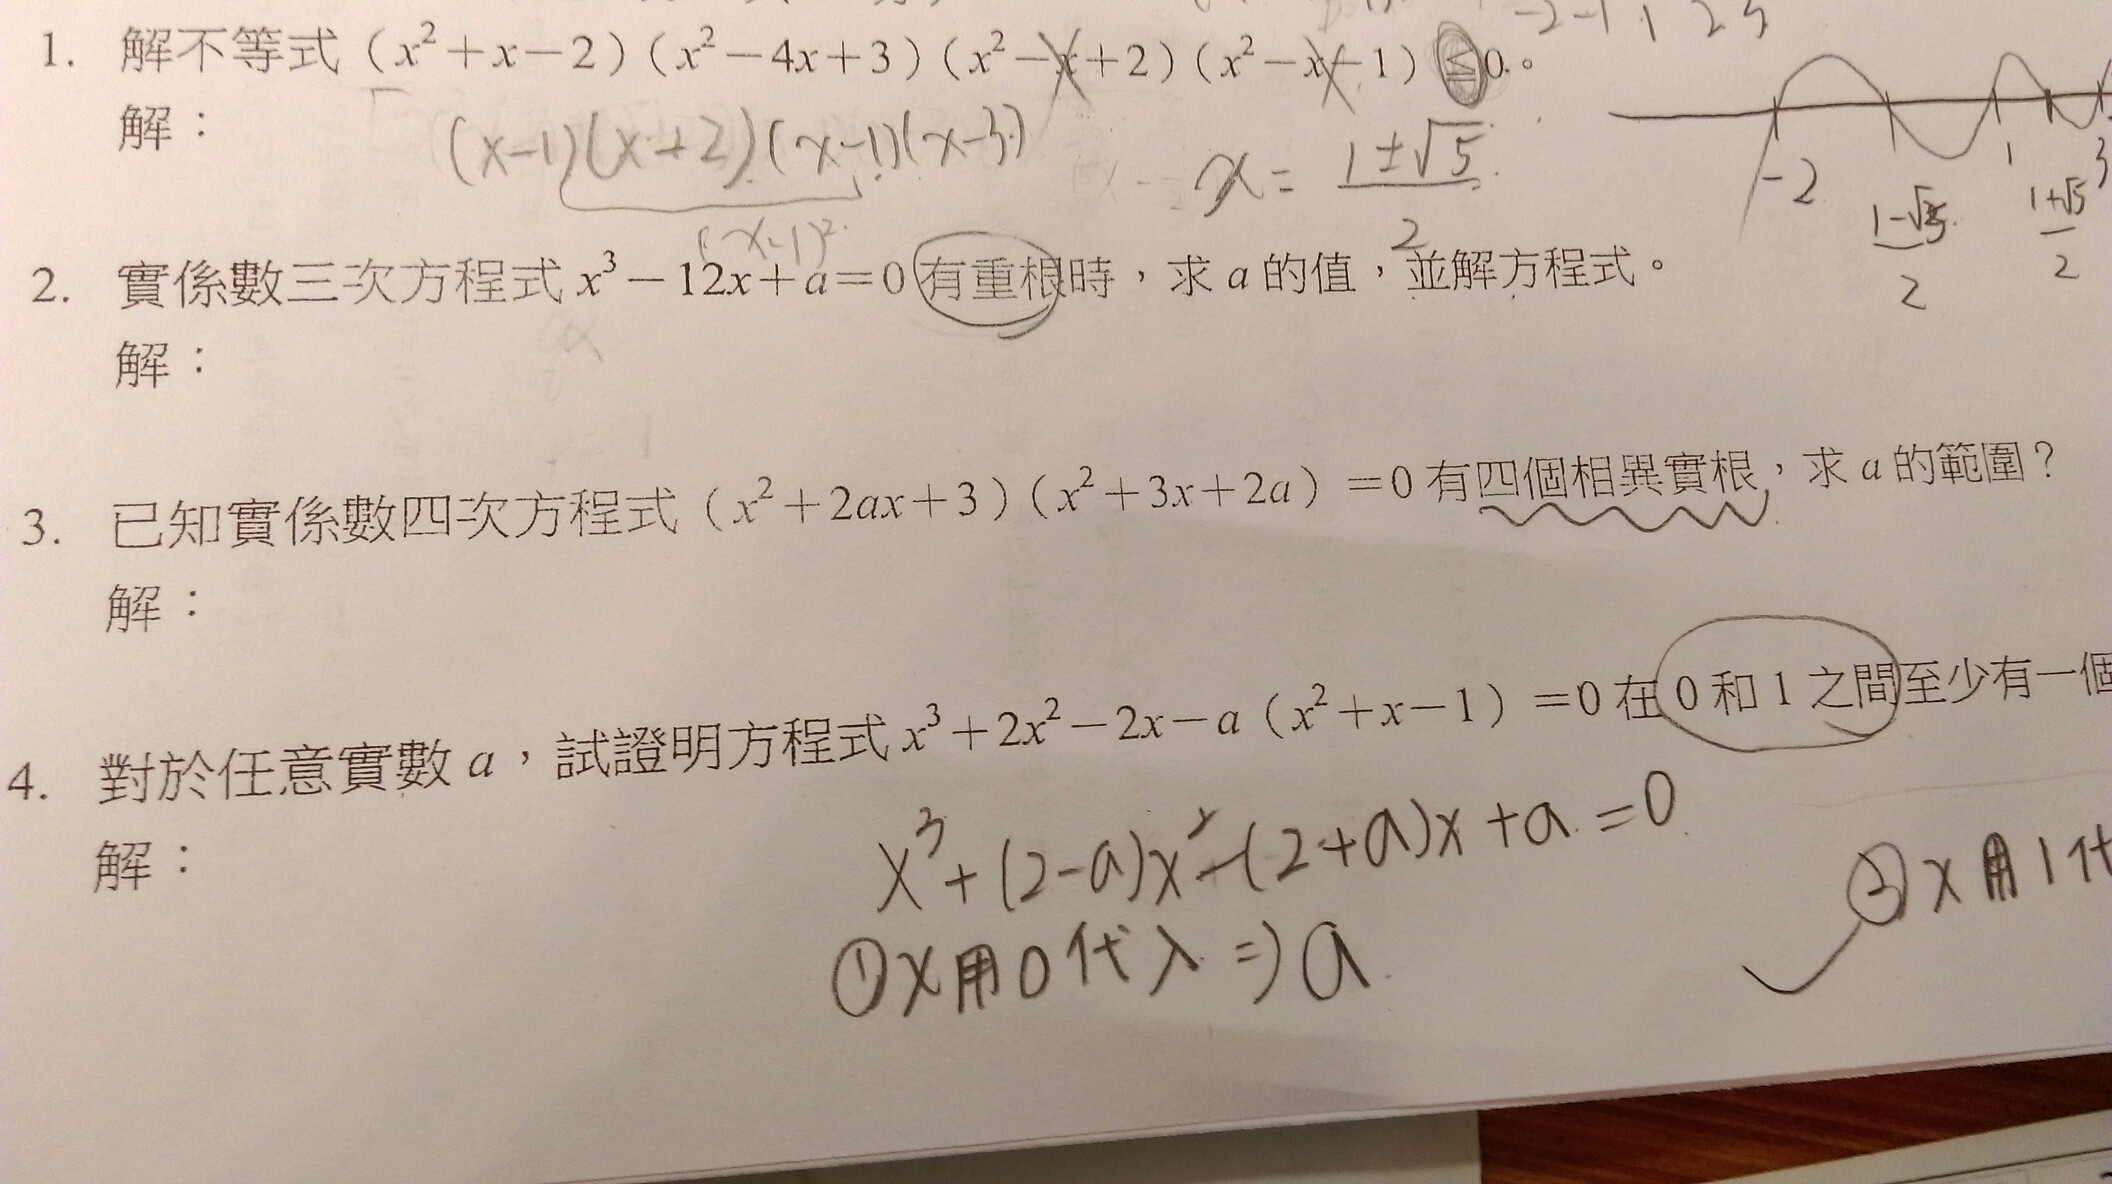 -2 -1 1 2 5
1. 解不等式(x²+x-2)(x²-4x+3)(x²-x+2)(x²-x-1)≤0。
解：
(x-1)(x+2)(x-1)(x-3)
(x-1)²
x = (1±√5)/2
-2 (1-√5)/2 1 (1+√5)/2 3
2. 實係數三次方程式 x³-12x+a=0 有重根時，求 a 的值，並解方程式。
解：
3. 已知實係數四次方程式(x²+2ax+3)(x²+3x+2a)=0 有四個相異實根，求 a 的範圍？
解：
4. 對於任意實數 a，試證明方程式 x³+2x²-2x-a(x²+x-1)=0 在 0 和 1 之間至少有一個
解：
x³+(2-a)x²-(2+a)x+a=0
①x用0代入⇒a
②x用1代